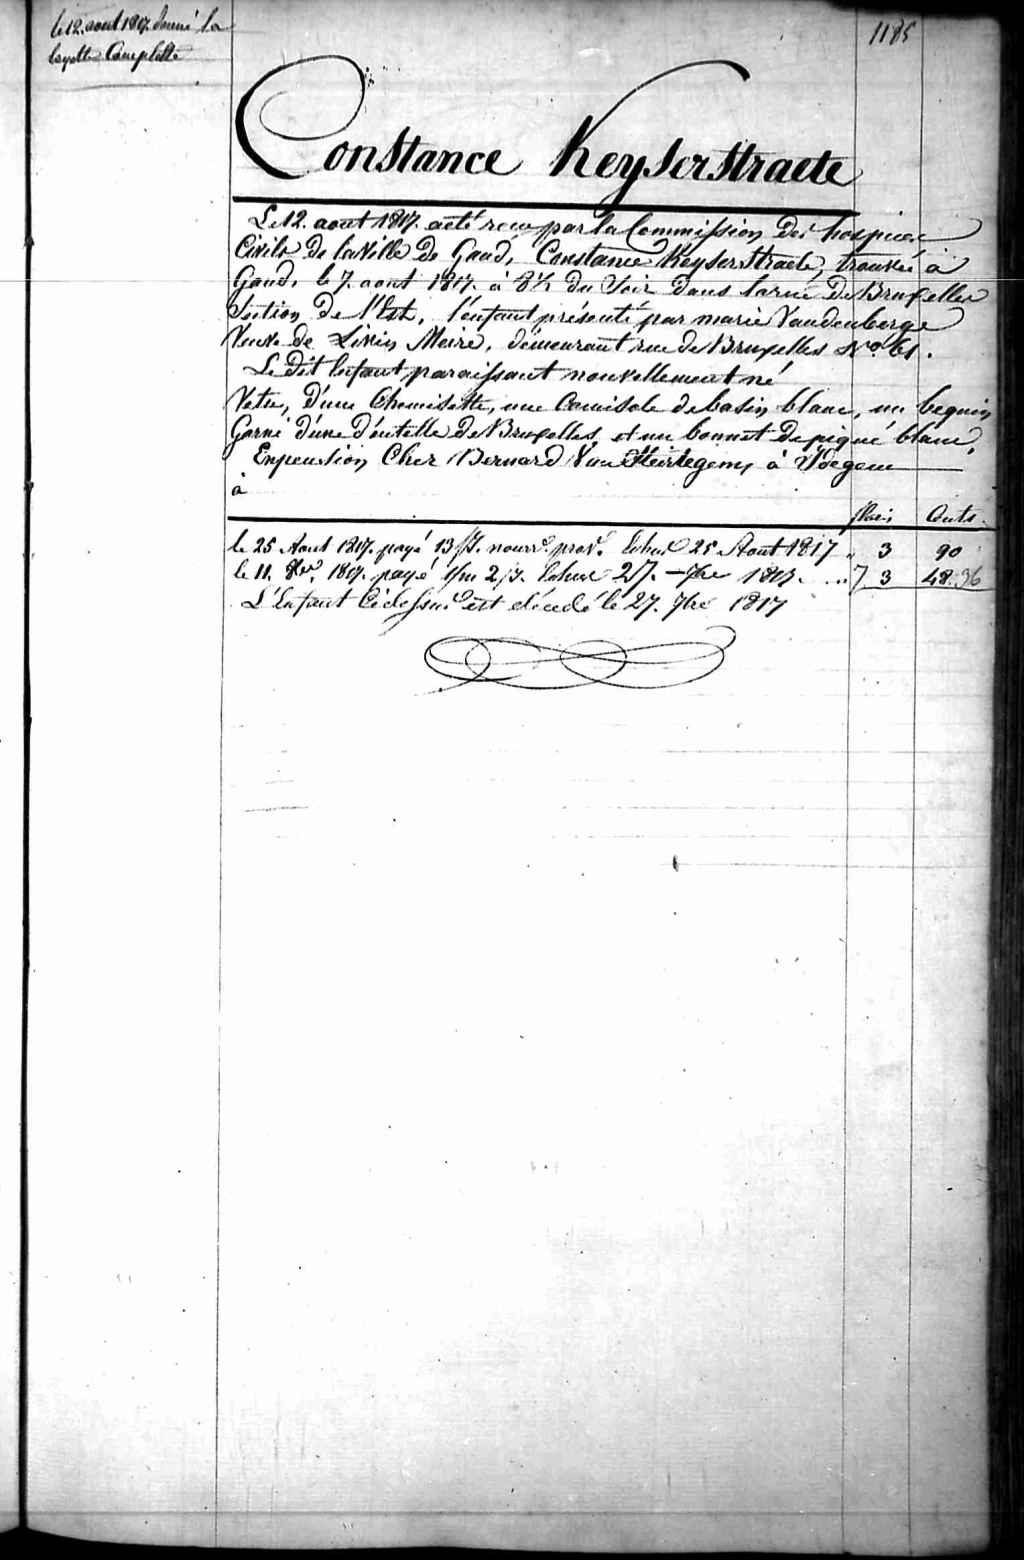 le 12. aout 1817. donné la
layette Complette
1185
Constance Keyserstraete
Le 12. aout 1817. a eté recu par la Commission des hospices
Civils De la Ville De Gand, Constance Keyserstraete, trouvée à
Gand, le 7. aout 1817. à 8½ du Soir Dans la rue De Bruxelles
Section De l'Est, l'enfant présenté par marie Vandenberge
Veuve de Livin Meire, demeurant rue de Bruxelles No. 61.
Le Dit Enfant paraissant nouvellement né
Vetu, D'une Chemisette, une Camisole de basin blanc, un beguin
Garni d'une d'entelle De Bruxelles, et un bonnet De piqué blanc,
En pension Chez Bernard Van
à
flori. Cents.
le 25 Aout 1817. payé 13 J. nourr. prov. Echue 25 Aout 1817 " 3 90
le 11. 1817. payé 27. 7bre 1817. 3 48
L'Enfant Ci dessus est decedé le 27. 7bre 1817